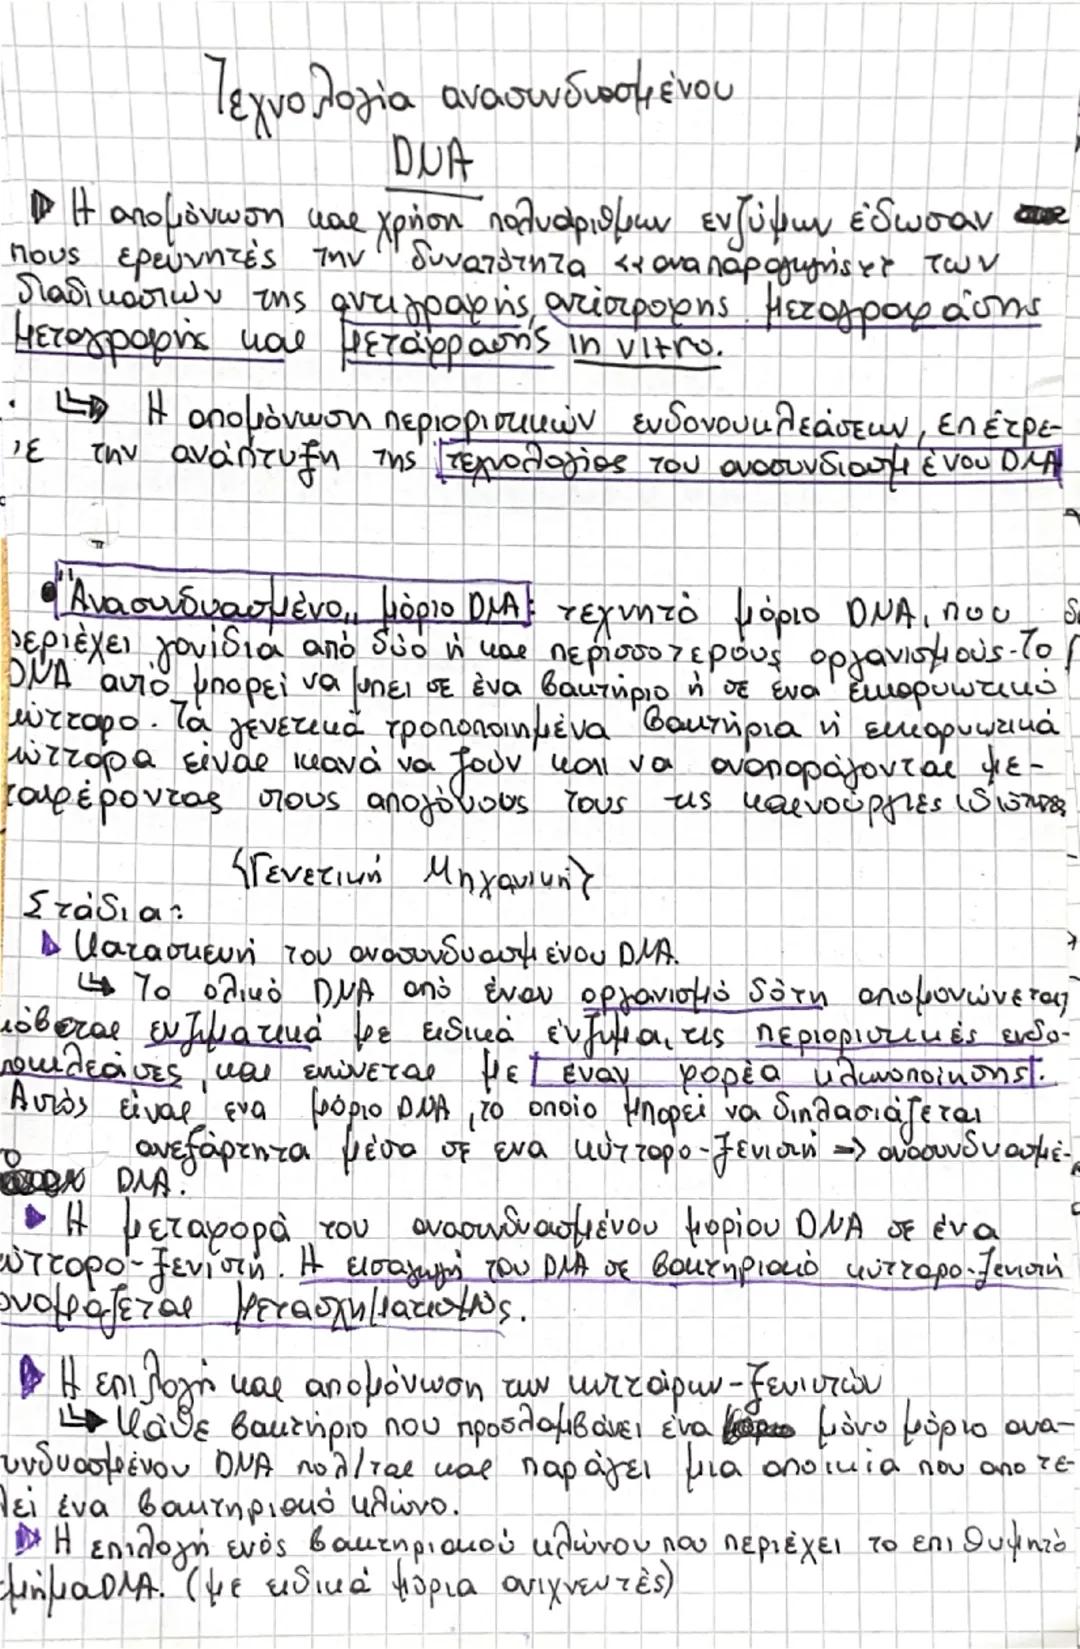 Τεχνολογία ανασυνδυασμένου
DNA
Η απομόνωση και χρήση πολυάριθμων ενζύμων έδωσαν
στους ερευνητές την δυνατότητα <<αναπαραγωγής>> των
διαδικασιών της αντιγραφής, αντίστροφης μεταγραφάσης
μεταγραφής και μετάφρασης in vitro.
↳ Η απομόνωση περιοριστικών ενδονουκλεάσεων, επέτρε-
ψε την ανάπτυξη της τεχνολογίας του ανασυνδυασμένου DNA
• "Ανασυνδυασμένο,, μόριο DNA: τεχνητό μόριο DNA, που
περιέχει γονίδια από δύο ή και περισσοτέρους οργανισμούς. Το
DNA αυτό μπορεί να μπει σε ένα βακτήριο ή σε ένα ευκαρυωτικό
κύτταρο. Τα γενετικά τροποποιημένα βακτήρια ή ευκαρυωτικά
κύτταρα είναι ικανά να ζουν και να αναπαράγονται με-
ταφέροντας στους απογόνους τους τις καινούργιες ιδιότητες
{Γενετική Μηχανική}
Στάδια:
Κατασκευή του ανασυνδυασμένου DNA.
↳ Το ολικό DNA από έναν οργανισμό δότη απομονώνεται,
κόβεται ενζυματικά με ειδικά ένζυμα, τις περιοριστικές ενδο-
νουκλεάσες, και ενώνεται με έναν φορέα κλωνοποίησης.
Αυτός είναι ένα μόριο DNA, το οποίο μπορεί να διπλασιάζεται
ανεξάρτητα μέσα σε ένα κύτταρο-ξενιστή => ανασυνδυασμέ-
νο DNA.
Η μεταφορά του ανασυνδυασμένου μορίου DNA σε ένα
κύτταρο-ξενιστή. Η εισαγωγή του DNA σε βακτηριακό κύτταρο-ξενιστή
ονομάζεται μετασχηματισμός.
Η επιλογή και απομόνωση των κυττάρων-ξενιστών
↳ Κάθε βακτήριο που προσλαμβάνει ένα μόνο μόριο ανα-
συνδυασμένου DNA πολ/ται και παράγει μια αποικία που αποτε-
λεί ένα βακτηριακό κλώνο.
Η επιλογή ενός βακτηριακού κλώνου που περιέχει το επιθυμητό
τμήμα DNA. (με ειδικά μόρια ανιχνευτές)